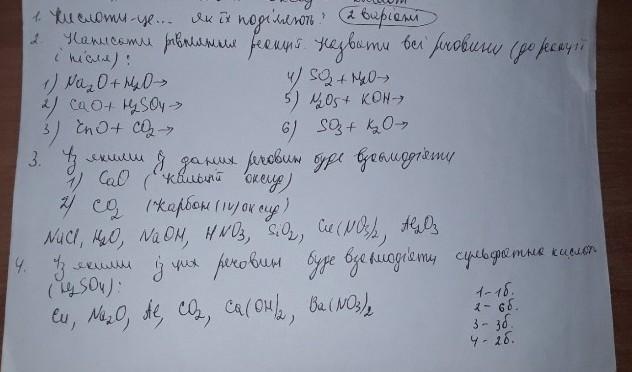 1. Кислоти-це... як їх поділяють? (2 варіант)
2. Написати рівняння реакції. Назвати всі речовини (до реакції
і після):
1) Na2O + H2O → 4) SO2 + H2O →
2) CaO + H2SO4 → 5) N2O5 + KOH →
3) ZnO + CO2 → 6) SO3 + K2O →
3. З якими із даних речовин буде взаємодіяти
1) CaO (кальцій оксид)
2) CO2 (карбон (IV) оксид)
NaCl, H2O, NaOH, HNO3, SiO2, Cu(NO3)2, Al2O3
4. З якими із цих речовин буде взаємодіяти сульфатна кислота
(H2SO4):
Cu, Na2O, Al, CO2, Ca(OH)2, Ba(NO3)2
1 - 1б.
2 - 6б.
3 - 3б.
4 - 2б.